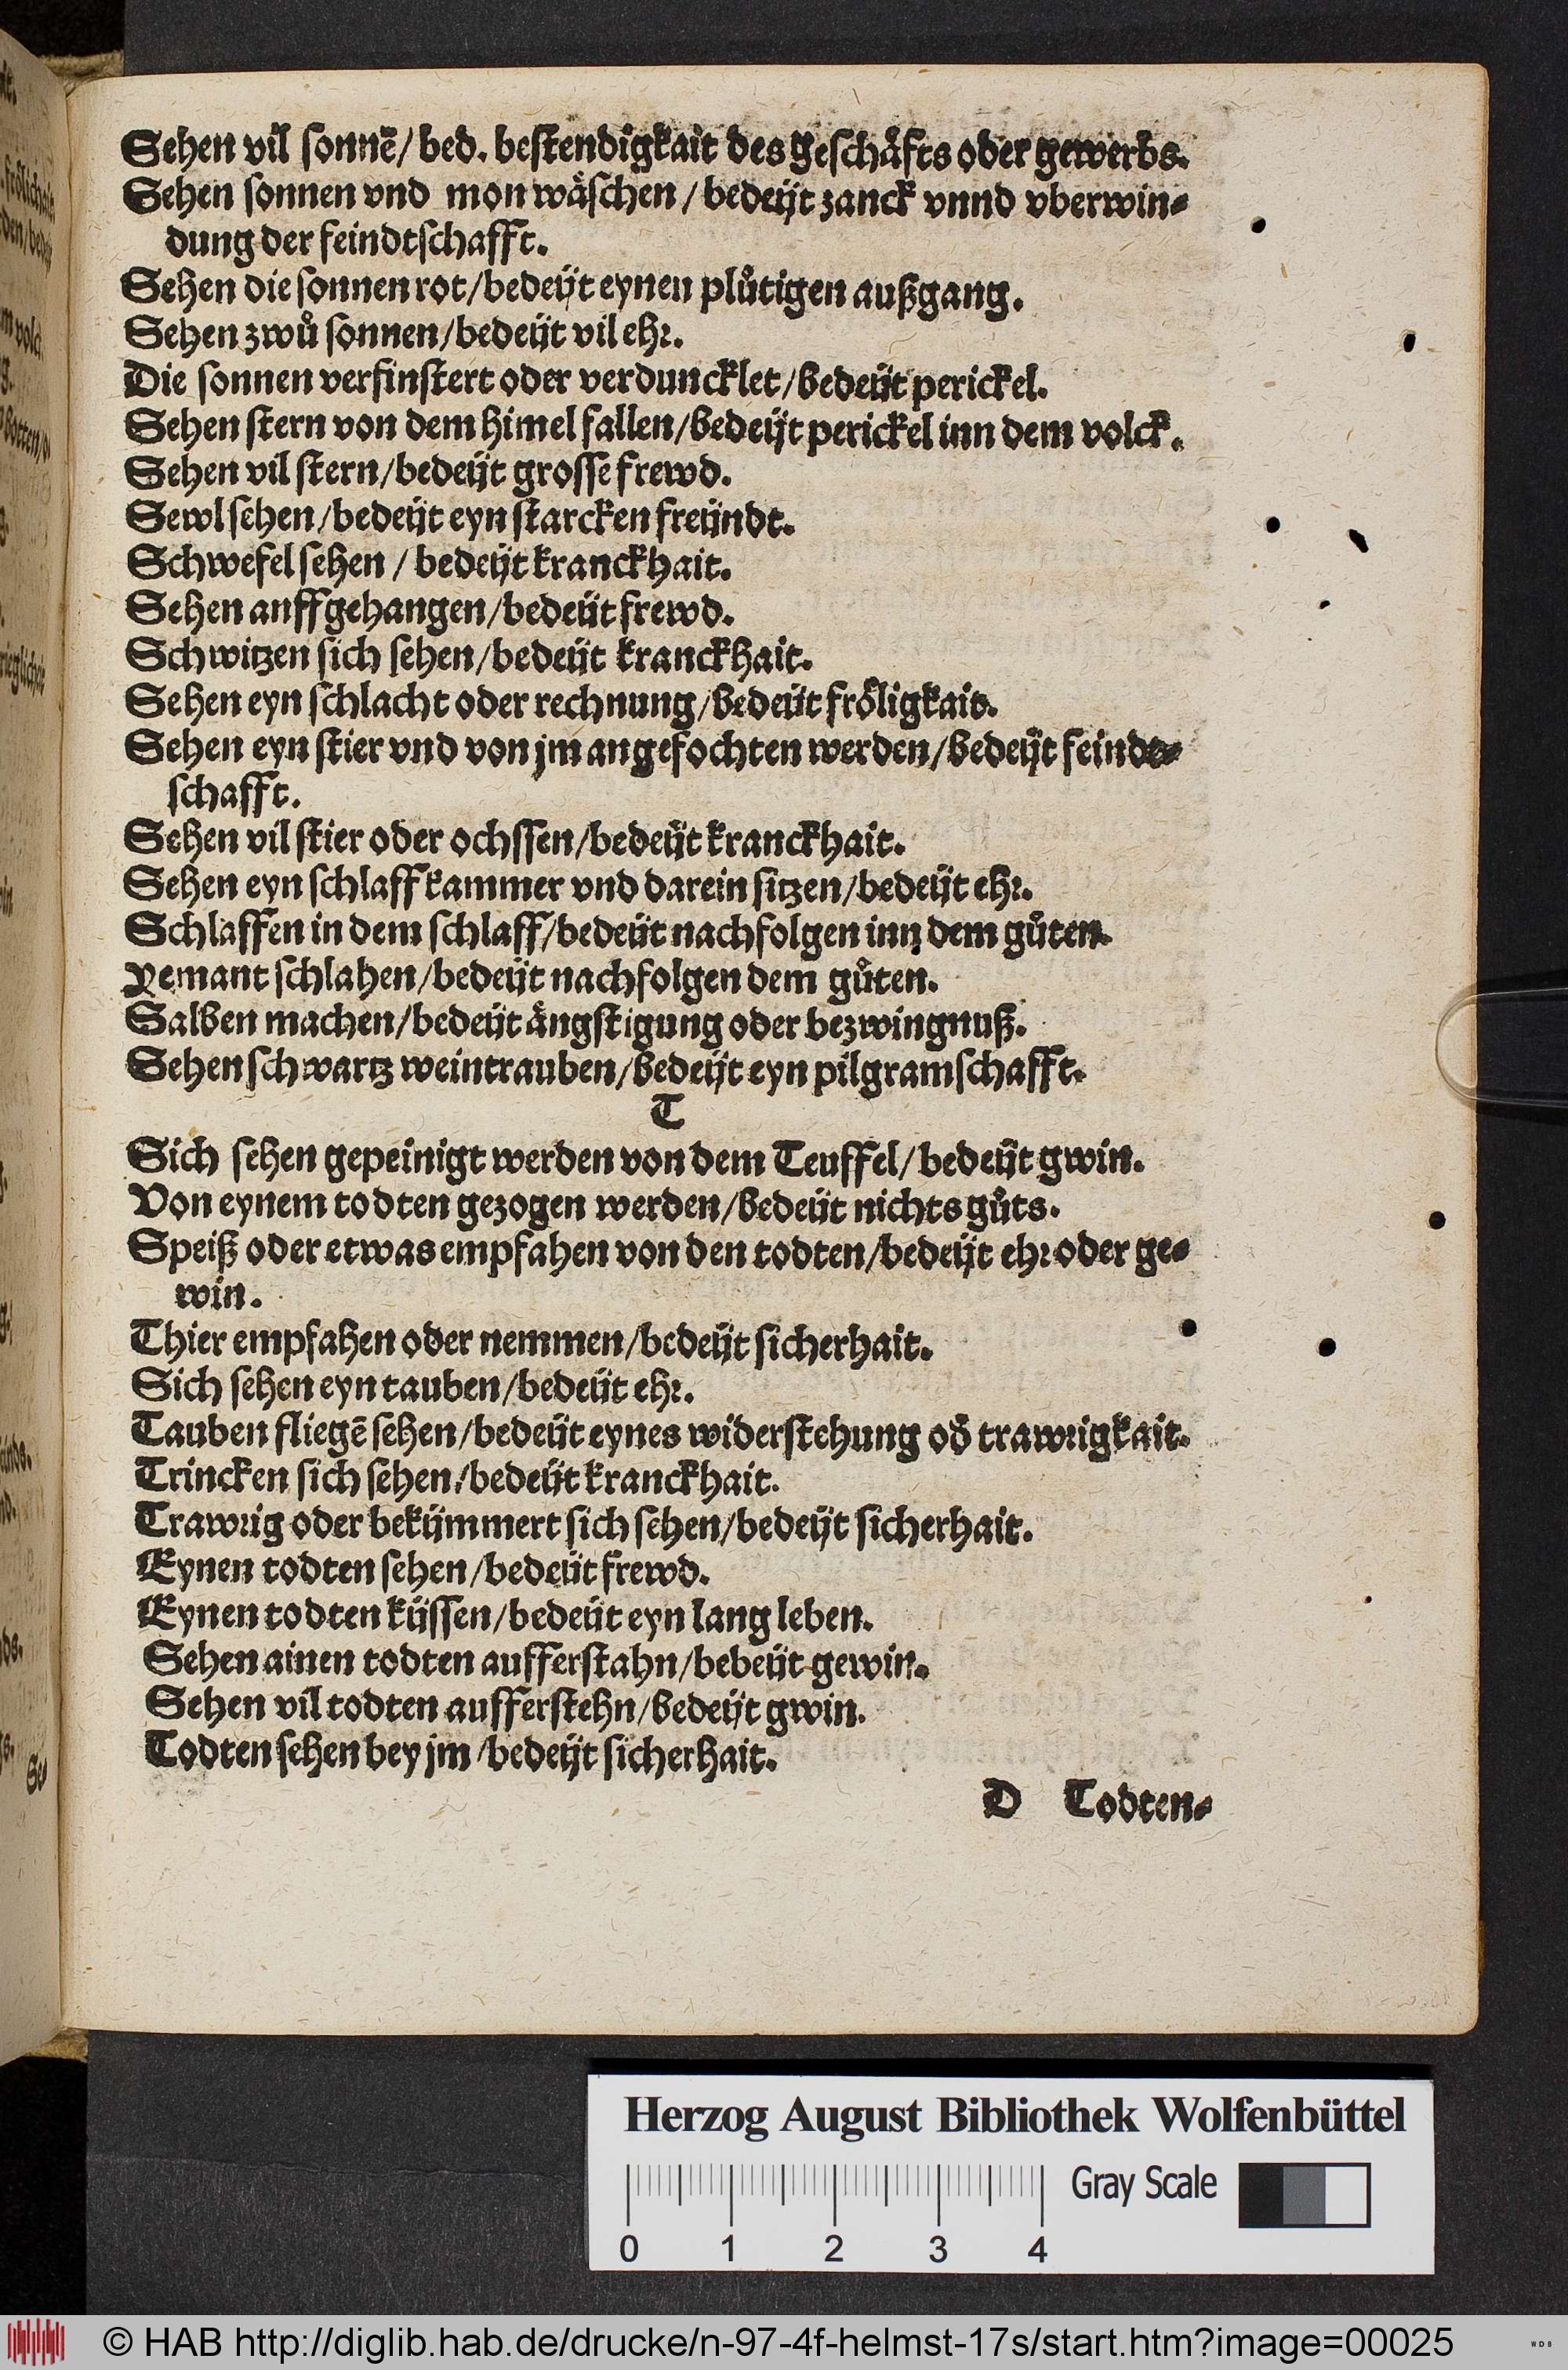 Sehen vil sonnē/ bed. bestendigkait des geschåfts oder gewerbs.
Sehen sonnen vnd mon wåschen / bedeüt zanck vnnd vberwin-
dung der feindtschafft.
Sehen die sonnen rot/bedeüt eynen plůtigen außgang.
Sehen zwů sonnen/bedeüt vil ehr.
Die sonnen verfinstert oder verduncklet/bedeüt perickel.
Sehen stern von dem himel fallen/bedeüt perickel inn dem volck.
Sehen vil stern/bedeüt grosse frewd.
Sewl sehen/bedeüt eyn starcken freündt.
Schwefel sehen / bedeüt kranckhait.
Sehen anffgehangen/bedeüt frewd.
Schwitzen sich sehen/bedeüt kranckhait.
Sehen eyn schlacht oder rechnung/bedeüt fröligkait.
Sehen eyn stier vnd von jm angefochten werden/bedeüt feindt-
schafft.
Sehen vil stier oder ochssen/bedeüt kranckhait.
Sehen eyn schlaffkammer vnd darein sitzen/bedeüt ehr.
Schlaffen in dem schlaff/bedeüt nachfolgen inn dem gůten.
Yemant schlahen/bedeüt nachfolgen dem gůten.
Salben machen/bedeüt ångstigung oder bezwingnuß.
Sehen schwartz weintrauben/bedeüt eyn pilgramschafft.
T
Sich sehen gepeinigt werden von dem Teuffel/bedeüt gwin.
Von eynem todten gezogen werden/bedeüt nichts gůts.
Speiß oder etwas empfahen von den todten/bedeüt ehr oder ge-
win.
Thier empfahen oder nemmen/bedeüt sicherhait.
Sich sehen eyn tauben/bedeüt ehr.
Tauben fliegē sehen/bedeüt eynes widerstehung od̕ trawrigkait.
Trincken sich sehen/bedeüt kranckhait.
Trawrig oder bekümmert sich sehen/bedeüt sicherhait.
Eynen todten sehen/bedeüt frewd.
Eynen todten küssen/bedeüt eyn lang leben.
Sehen ainen todten aufferstahn/bebeüt gewin.
Sehen vil todten aufferstehn/bedeüt gwin.
Todten sehen bey jm/bedeüt sicherhait.
D Todten-
Herzog August Bibliothek Wolfenbüttel
Gray Scale
0 1 2 3 4
© HAB http://diglib.hab.de/drucke/n-97-4f-helmst-17s/start.htm?image=00025